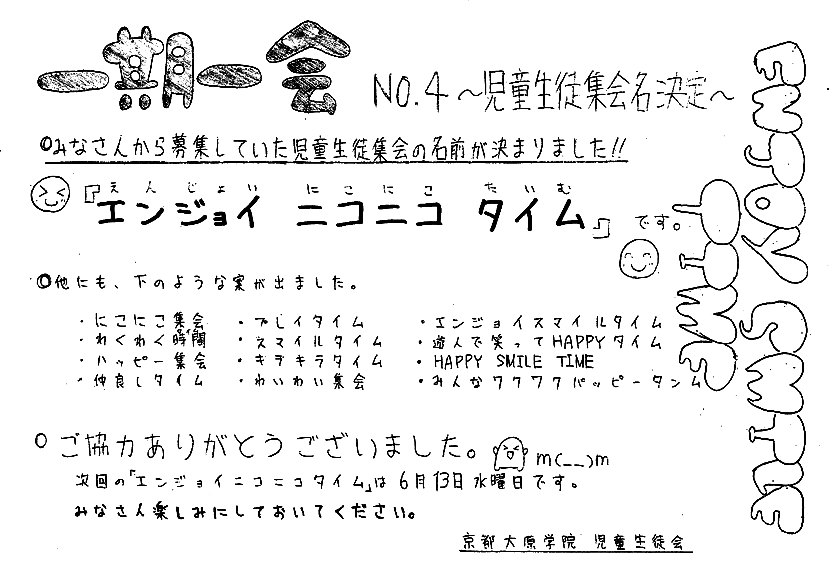 一期一会 NO.4 ～児童生徒集会名決定～
○みなさんから募集していた児童生徒集会の名前が決まりました!!
えんじょい にこにこ たいむ
『エンジョイ ニコニコ タイム』です。
◎他にも、下のような案が出ました。
・にこにこ集会 ・プレイタイム ・エンジョイスマイルタイム
・わくわく時間 ・スマイルタイム ・遊んで笑ってHAPPYタイム
・ハッピー集会 ・キラキラタイム ・HAPPY SMILE TIME
・仲良しタイム ・わいわい集会 ・みんなワクワクハッピータイム
○ご協力ありがとうございました。 m(__)m
次回の「エンジョイニコニコタイム」は6月13日水曜日です。
みなさん楽しみにしておいてください。
京都大原学院 児童生徒会
ENJOY SMILE
TIME